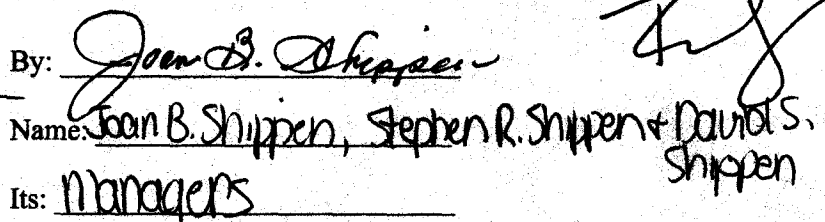 By: Joan B. Shippen
Name: Joan B. Shippen, Stephen R. Shippen + David S.
Shippen
Its: Managers